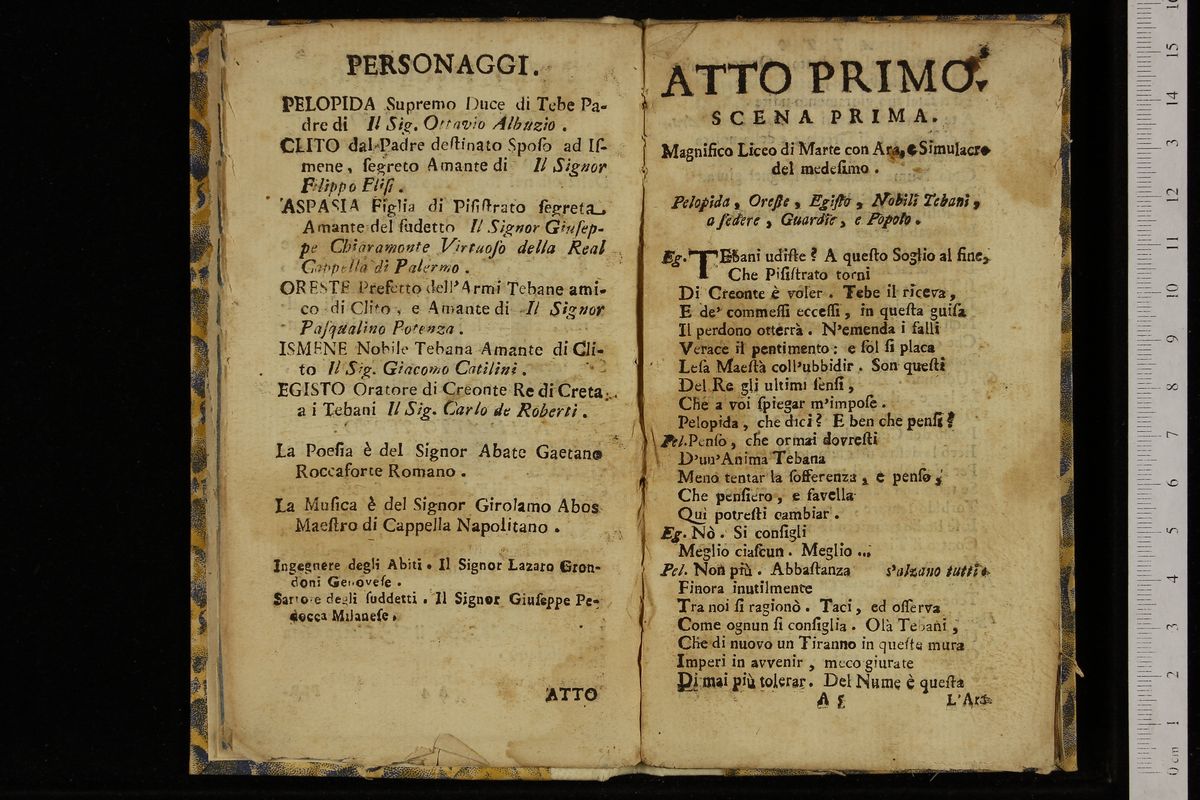 PERSONAGGI.
PELOPIDA Supremo Duce di Tebe Pa-
dre di Il Sig. Ottavio Albuzio .
CLITO dal Padre deſtinato Spoſo ad Iſ-
mene , ſegreto Amante di Il Signor
Filippo Eliſi .
ASPASIA Figlia di Piſiſtrato ſegreta
Amante del ſudetto Il Signor Giuſep-
pe Chiaramonte Virtuoſo della Real
Cappella di Palermo .
ORESTE Prefetto dell'Armi Tebane ami-
co di Clito , e Amante di Il Signor
Paſqualino Potenza .
ISMENE Nobile Tebana Amante di Cli-
to Il Sig. Giacomo Catilini .
EGISTO Oratore di Creonte Re di Creta
a i Tebani Il Sig. Carlo de Roberti .
La Poeſia è del Signor Abate Gaetano
Roccaforte Romano .
La Muſica è del Signor Girolamo Abos
Maeſtro di Cappella Napolitano .
Ingegnere degli Abiti . Il Signor Lazaro Gron-
doni Genoveſe .
Sartore degli ſuddetti . Il Signor Giuſeppe Pe-
docca Milaneſe .
ATTO
ATTO PRIMO.
SCENA PRIMA.
Magnifico Liceo di Marte con Ara, e Simulacro
del medeſimo .
Pelopida , Oreſte , Egiſto , Nobili Tebani ,
a ſedere , Guardie , e Popolo .
Eg. TEbani udiſte ? A queſto Soglio al fine,
Che Piſiſtrato torni
Di Creonte è voler . Tebe il riceva ,
E de' commeſſi ecceſſi , in queſta guiſa
Il perdono otterrà . N'emenda i falli
Verace il pentimento : e ſol ſi placa
Leſa Maeſtà coll'ubbidir . Son queſti
Del Re gli ultimi ſenſi ,
Che a voi ſpiegar m'impoſe .
Pelopida , che dici ? E ben che penſi ?
Pel. Penſo , che ormai dovreſti
D'un'Anima Tebana
Meno tentar la ſofferenza , e penſo ,
Che penſiero , e favella
Qui potreſti cambiar .
Eg. Nò . Si conſigli
Meglio ciaſcun . Meglio ...
Pel. Non più . Abbaſtanza s'alzano tutti .
Finora inutilmente
Tra noi ſi ragionò . Taci , ed oſſerva
Come ognun ſi conſiglia . Olà Tebani ,
Che di nuovo un Tiranno in queſte mura
Imperi in avvenir , meco giurate
Di mai più tolerar . Del Nume è queſta
A 5 L'Ara